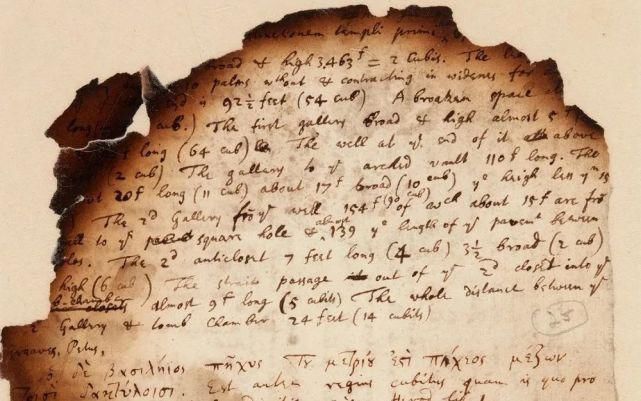 templi prim
broad & high 3,463f = 2 cubits. The
palms without & contracting in widenes
end is 92½ feet (54 cub) A broaken space
cub.) The first gallery broad & high almost 5
long (64 cub) The well at ye end of it above
(2 cub) The gallery to ye arched vault 110f long. The
20f long (11 cub) about 17f broad (10 cub) ye heigh less yn 15
The 2d Gallery frō ye well 154f (90 cub) of wch about 15f are frō
to ye square hole & almost 139 ye length of ye pavemt between
The 2d anticloset 7 feet long (4 cub) 3½ broad (2 cub)
high (6 cub) The straits passage out of ye 2d closet into ye
almost 9f long (5 cubits) The whole distance between ye
Gallery & tomb chamber 24 feet (14 cubits)
25
greaves, Petus,
ὁ δὲ βασιλήιος πῆχυς τοῦ μετρίου ἐστὶ πήχεος μέζων
τρισὶ δακτύλοισι. Est autem regius cubitus quam is quo pro